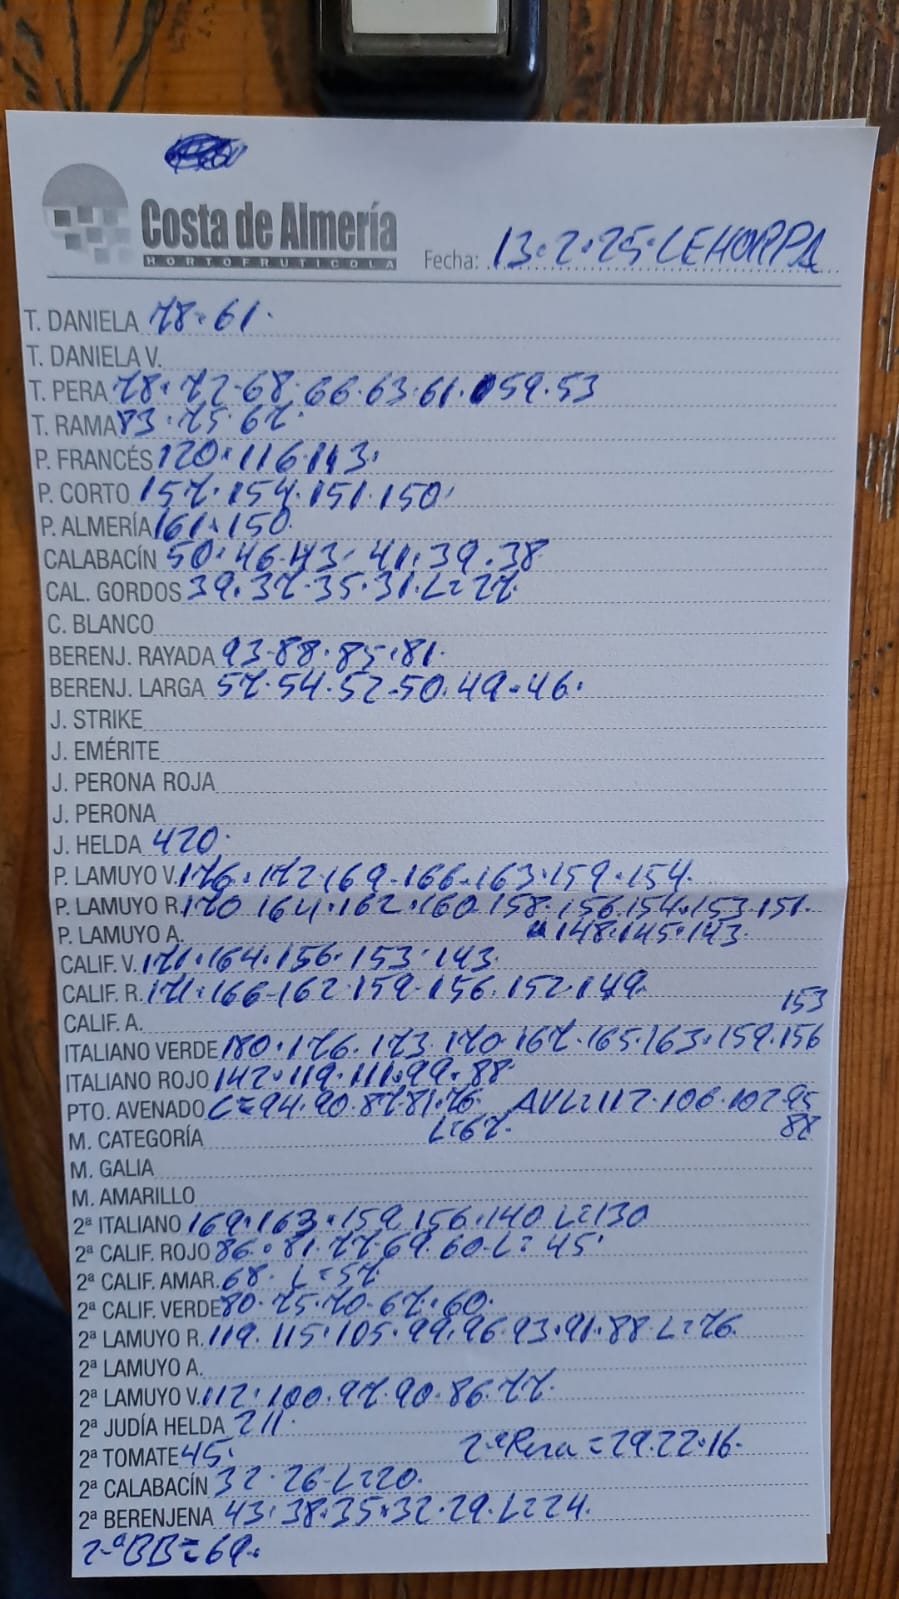 Costa de Almería
HORTOFRUTICOLA
Fecha: 13·2·25·LEHORPA
T. DANIELA 78·61·
T. DANIELA V.
T. PERA 78·72·68·66·63·61·59·53
T. RAMA 83·75·67·
P. FRANCÉS 120·116·113·
P. CORTO 157·154·151·150·
P. ALMERÍA 161·150
CALABACÍN 50·46·43·41·39·38
CAL. GORDOS 39·37·35·31·L=27·
C. BLANCO
BERENJ. RAYADA 93·88·85·81·
BERENJ. LARGA 57·54·52·50·49·46·
J. STRIKE
J. EMÉRITE
J. PERONA ROJA
J. PERONA
J. HELDA 420·
P. LAMUYO V. 176·172·169·166·163·159·154·
P. LAMUYO R. 170·164·162·160·158·156·154·153·151·
P. LAMUYO A. 148·145·143·
CALIF. V. 171·164·156·153·143·
CALIF. R. 171·166·162·159·156·152·149·
CALIF. A. 153
ITALIANO VERDE 180·176·173·170·167·165·163·159·156
ITALIANO ROJO 142·119·111·99·88·
PTO. AVENADO C=94·90·87·81·76· AVL=112·106·102·95
M. CATEGORÍA L=67· 88
M. GALIA
M. AMARILLO
2ª ITALIANO 169·163·159·156·140·L=130
2ª CALIF. ROJO 86·81·77·69·60·L=45·
2ª CALIF. AMAR. 68·L=57
2ª CALIF. VERDE 80·75·70·67·60·
2ª LAMUYO R. 119·115·105·99·96·93·91·88·L=76·
2ª LAMUYO A.
2ª LAMUYO V. 112·100·97·90·86·77·
2ª JUDÍA HELDA 211·
2ª TOMATE 45· 2ª Pera=29·22·16·
2ª CALABACÍN 32·26·L=20·
2ª BERENJENA 43·38·35·32·29·L=24·
2ªBB=69·